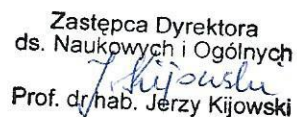 Zastępca Dyrektora
ds. Naukowych i Ogólnych
J. Kijowski
Prof. dr hab. Jerzy Kijowski